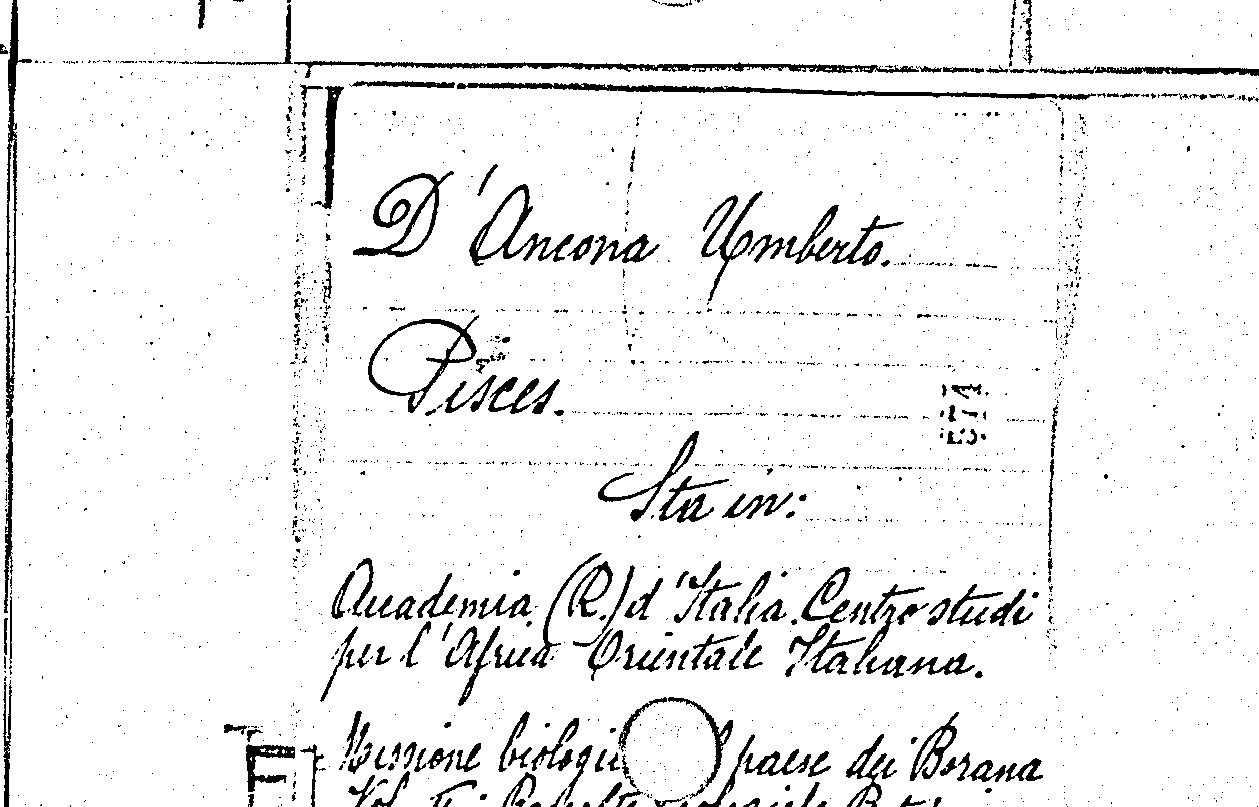 D'Ancona Umberto.
Pisces.
571
Sta in:
Accademia (R.) d'Italia. Centro studi
per l'Africa Orientale Italiana.
Missione biologi paese dei Borana
Vol.